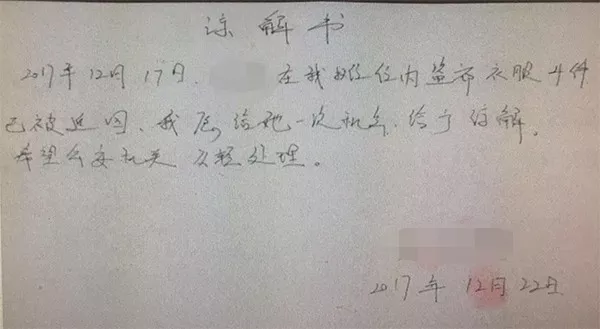 谅解书
2017年12月17日. 在我摊位内盗窃衣服4件
已被追回、我愿给她一次机会.给予谅解.
希望公安机关从轻处理。
2017年12月22日